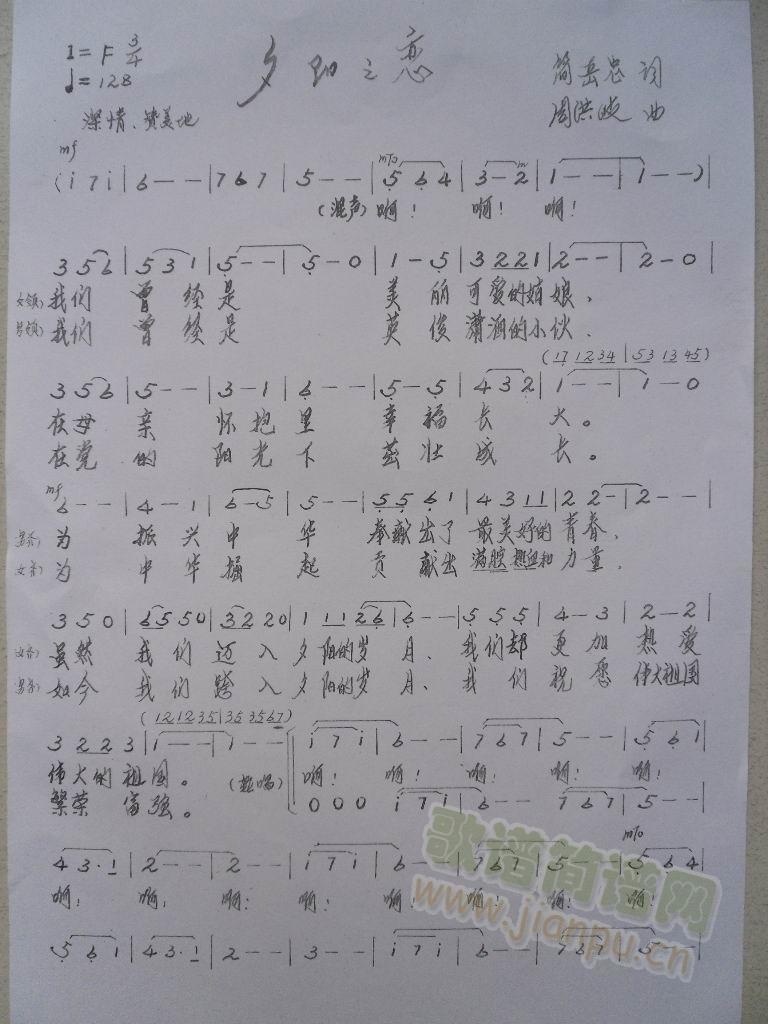 1=F 3/4
♩=128
夕阳之恋
简岳忠 词
周洪岐 曲
深情、赞美地
mf
mTo m
(i 7 i | 6 - - | 7 6 7 | 5 - - | 5 6 4 | 3 - 2 | 1 - - | 1 - - ) |
(混声) 啊! 啊! 啊!
3 5 6 | 5 3 1 | 5 - - | 5 - 0 | 1 - 5 | 3 2 2 1 | 2 - - | 2 - 0 |
女领) 我们 曾经是 美丽可爱的姑娘、
男领) 我们 曾经是 英俊潇洒的小伙.
(17 1234 | 53 13 45)
3 5 6 | 5 - - | 3 - 1 | 6 - - | 5 - 5 | 4 3 2 | 1 - - | 1 - 0
在母亲怀抱里幸福长大。
在党的阳光下茁壮成长。
mf
6 - - | 4 - 1 | 6 - 5 | 5 - - | 5 5 6 1 | 4 3 1 1 | 2 2 - | 2 - -
男齐) 为振兴中华奉献出了最美好的青春,
女齐) 为中华掘起贡献出满腔热血和力量.
3 5 0 | 6 5 5 0 | 3 2 2 0 | 1 1 1 2 6 | 6 - - | 5 5 5 | 4 - 3 | 2 - 2
女齐) 虽然我们迈入夕阳的岁月、我们却更加热爱
男齐) 如今我们跨入夕阳的岁月、我们祝愿伟大祖国
(12 12 35 | 35 35 67)
3 2 2 3 | 1 - - | 1 - - | i 7 i | 6 - - | 7 6 7 | 5 - - | 5 6 1 |
伟大的祖国。 啊! 啊! 啊! 啊! 啊!
繁荣富强。
0 0 0 | i 7 i | 6 - - | 7 6 7 | 5 - - |
mTo
4 3· 1 | 2 - - | 2 - - | i 7 i | 6 - - | 7 6 7 | 5 - - | 5 6 4 |
啊! 啊! 啊! 啊! 啊! 啊! 啊! 啊!
5 6 1 | 4 3· 1 | 2 - - | 3 - - | i 7 i | 6 - - | 7 6 7 | 5 - - |
歌谱简谱网
www.jianpu.cn